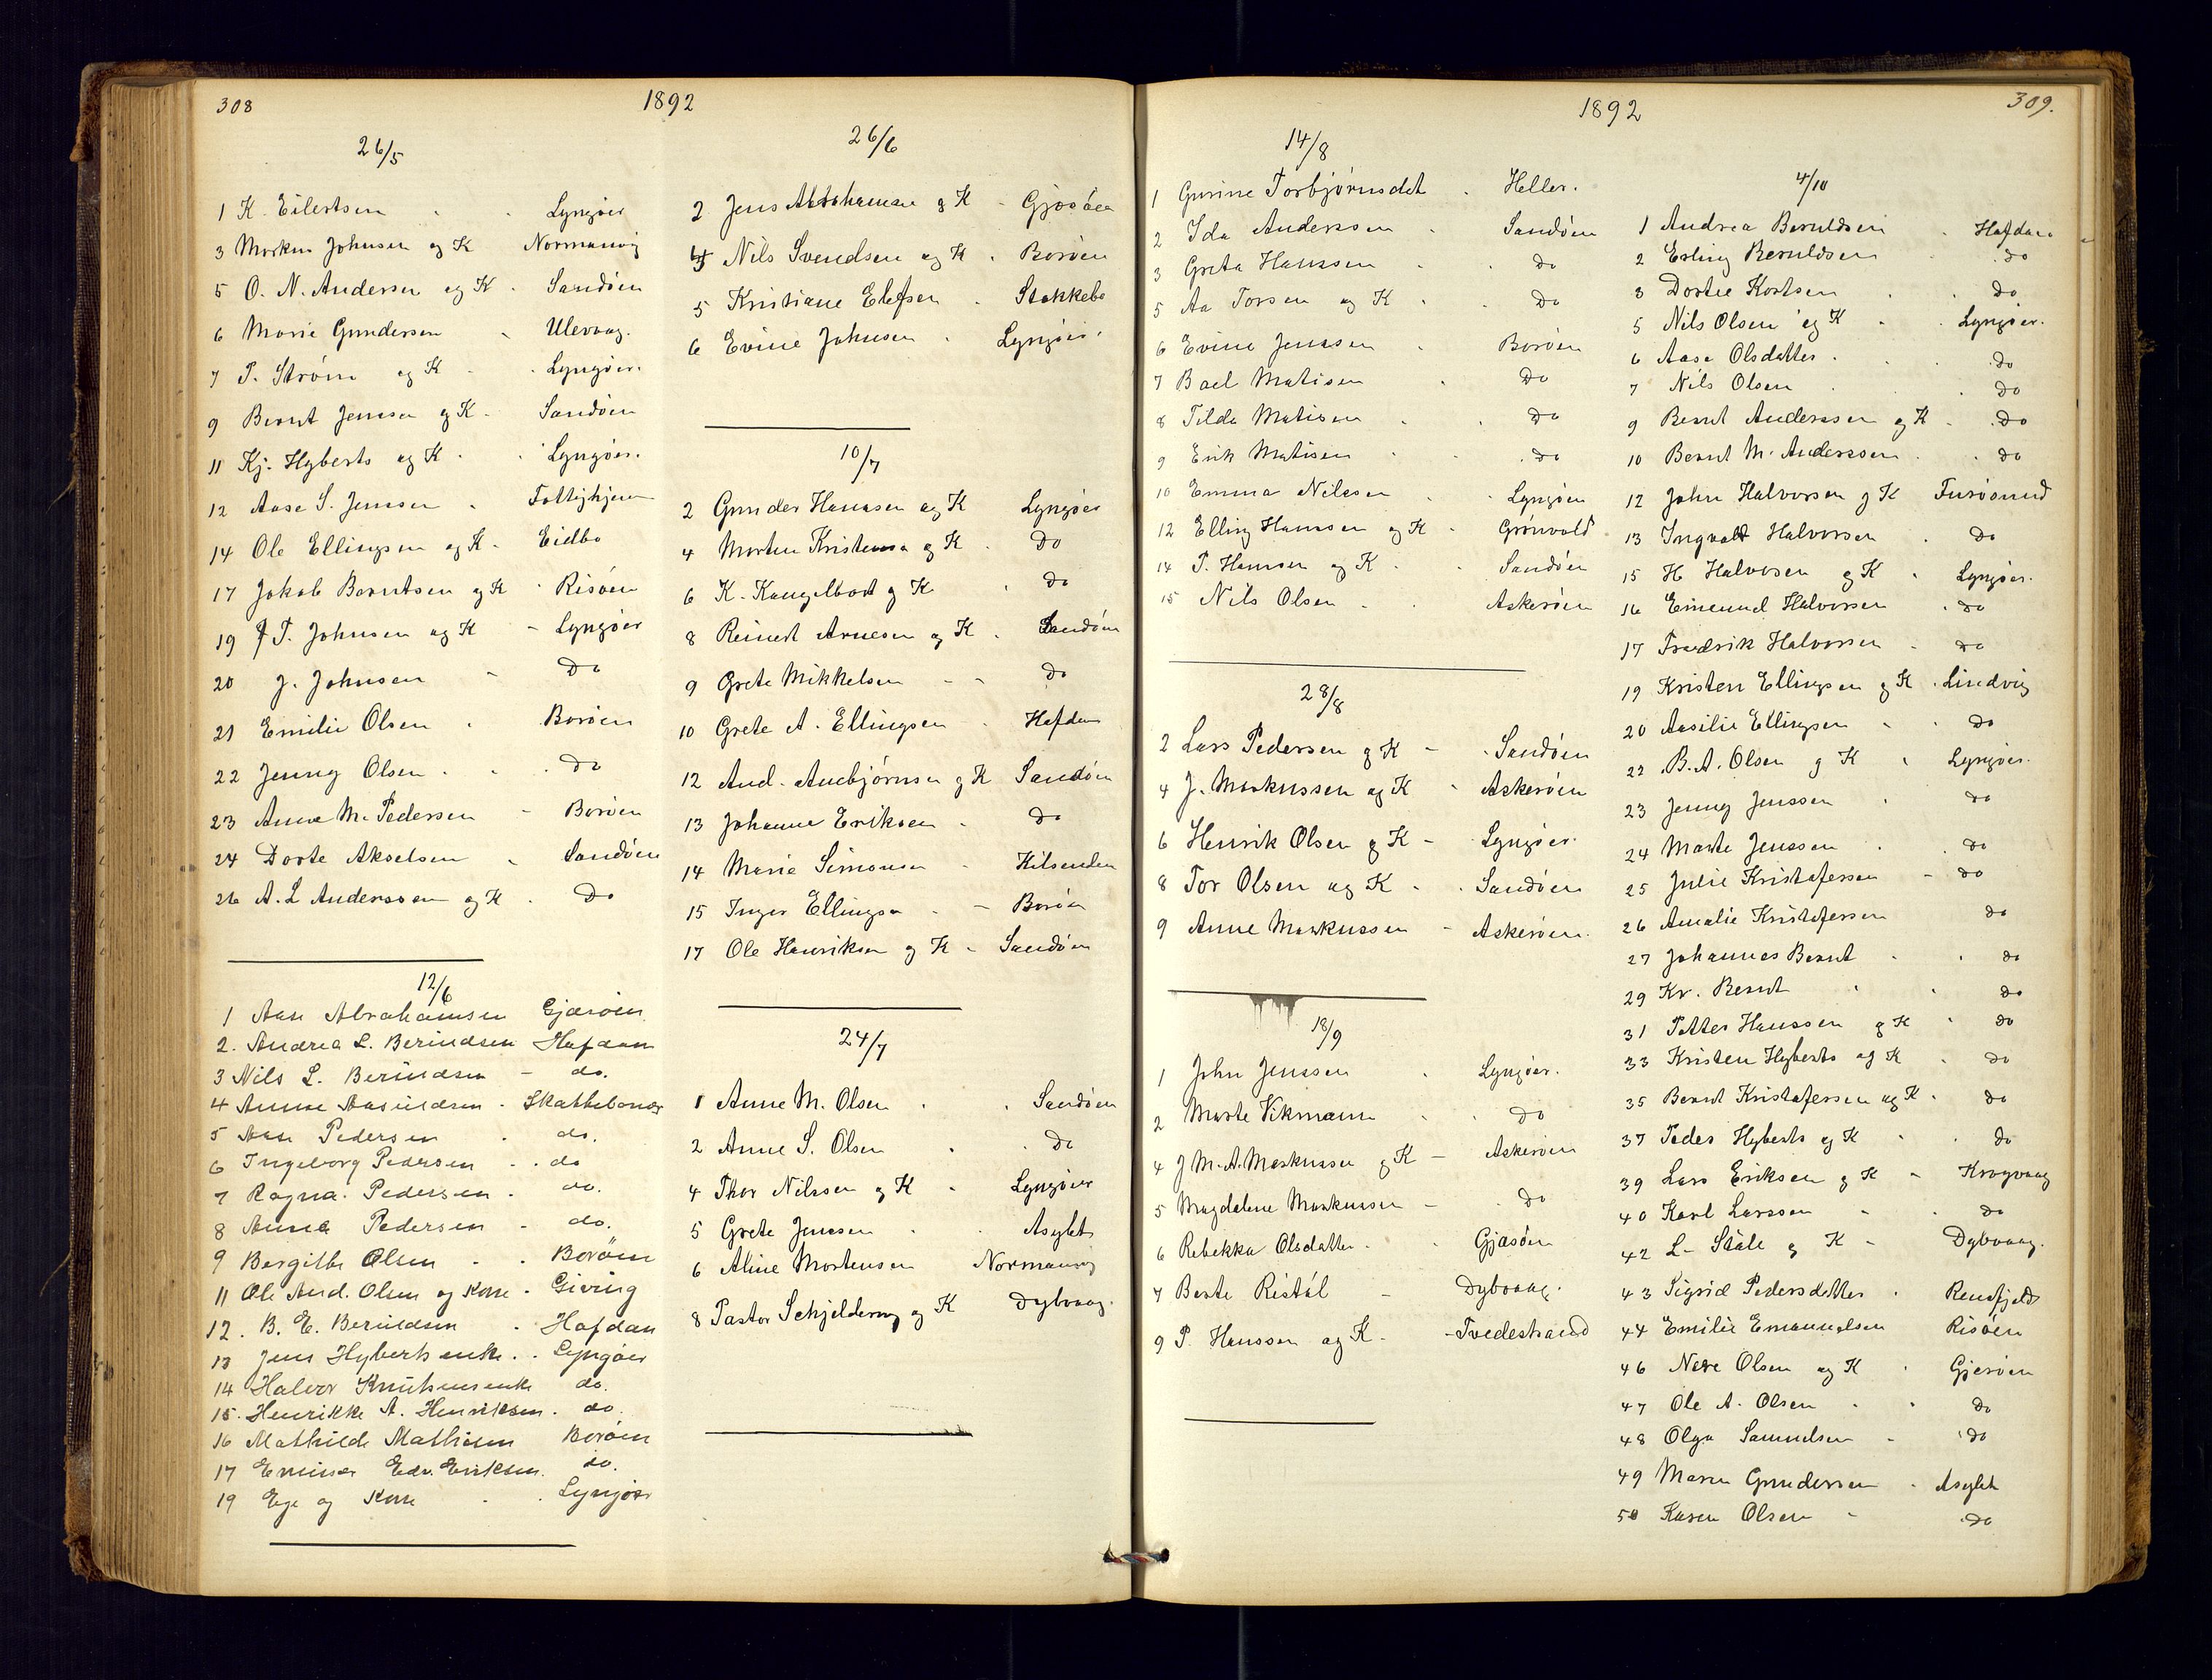 308
1892
26/5
1 K. Eilertsen Lyngøer
3 Markus Johnsen og K Normanvig
5 O. N. Andersen og K Sandøen
6 Marie Gundersen Ulevaag.
7 P. Strøm og K Lyngøer.
9 Bernt Jensen og K Sandøen
11 Kj. Hyberts og K Lyngøer.
12 Aase S. Jensen
14 Ole Ellingsen og K Eidbo
17 Jakob Berntsen og K Risøen
19 T. Johnsen og K Lyngøer
20 J. Johnsen Do
21 Emilie Olsen Borøen
22 Jenny Olsen Do
23 Anne M. Pedersen Borøen
24 Dorte Akselsen Sandøen
26 A. L Anderssen og K Do
12/6
1 Aase Abrahamsen Gjærøen
2. Andrea L. Beruldsen Hafdan
3 Nils L. Beruldsen do.
4 Anne Aasuldsen
5 Aase Pedersen do.
6 Ingeborg Pedersen do
7 Ragna Pedersen do.
8 Anna Pedersen do.
9 Bergithe Olsen Borøen
11 Ole And. Olsen og Kone Gieving
12. B. E. Beruldsen Hafdan
13 Jens Hyberts enke Lyngøer
14 Halvor Knutsens enke do.
15. Henrikke A. Henriksen do.
16 Mathilde Mathisen Borøen
17 Edv. Eriksen do.
19 Ege og Kone Lyngøer
26/6
2 Jens Abrahamsen og K
4 Nils Svendsen og K Borøen
5 Kristiane Elefsen Stakkebo
6 Evine Johnsen Lyngøer
10/7
2 Gunder Hanssen og K Lyngøer
4 Morten Kristensen og K Do
6 K. og K do
8 Reinert Arnesen og K Sandøen
9 Grete Mikkelsen do
10 Grete A. Ellingsen Hafdan
12 And. Anebjørnsen og K Sandøen
13 Johanne Eriksen do
14 Marie Simonsen Kilsenden
15 Inger Ellingsen Borøen
17 Ole Henriksen og K Sandøen
24/7
1 Anne M. Olsen Sandøen
2 Anne S. Olsen Do
4 Thor Nilssen og K Lyngøer
5 Grete Jenssen Asylet
6 Aline Mortensen Normanvig
8 Pastor Schjelderup og K Dybvaag.
309.
1892
14/8
1 Gurine Torbjørnsdet Heller.
2 Ida Anderssen Sandøen
3 Greta Hanssen Do
5 Aa Torsen og K Do
6 Evine Jenssen Borøen
7 Bael Matisen Do
8 Tilda Matisen Do
9 Erik Matisen do
10 Emma Nilssen Lyngøen
12 Elling Hanssen og K Grønvold
14 P. Hanssen og K Sandøen
15 Nils Olsen Askerøen
28/8
2 Lars Pedersen og K Sandøen
4 J. Markussen og K Askerøen
6 Henrik Olsen og K Lyngøer.
8 Tor Olsen og K Sandøen
9 Anne Markussen Askerøen.
18/9
1 John Jenssen Lyngøer.
2 Marte Vikmann Do
4 J M. A. Markussen og K Askerøen
5 Magdalene Markussen Do
6 Rebekka Olsdatter Gjæsøen
7 Berte Ristøl Dybvaag.
9 P. Hanssen og K Tvedestrand
4/10
1 Andrea Beruldsen Hafdan
2 Erling Beruldsen do
3 Dortee Do
5 Nils Olsen og K Lyngøer.
6 Aase Olsdatter do
7 Nils Olsen do
9 Bernt Anderssen og K Do
10 Bernt M. Anderssen do
12 John Halvorsen og K Furøsund
13 Ingvald Halvorsen do
15 H Halvorsen og K Lyngøer.
16 Emanuel Halvorsen do
17 Fredrik Halvorsen do
19 Kristen Ellingsen og K Lindvig
20 Aasilie Ellingsen do
22 B. A. Olsen og K Lyngøer.
23 Jenny Jenssen do
24 Marte Jenssen do
25 Julie Kristofersen do
26 Amalie Kristofersen do
27 Johannes Bernt do
29 Kr. Bernt do
31 Petter Hanssen og K do
33 Kristen Hyberts og K do
35 Bernt Kristofersen og K do
37 Peder Hyberts og K do
39 Lars Eriksen og K Krogvaag
40 Karl Larssen do
42 L. Ståle og K Dybvaag.
43 Sigrid Pedersdatter Rensfjeld
44 Emilie Emanuelsen Risøen
46 Nere Olsen og K Gjerøen
47 Ole A. Olsen do
48 Olga Samuelsen do
49 Maren Gundersen Asylet
50 Karen Olsen do